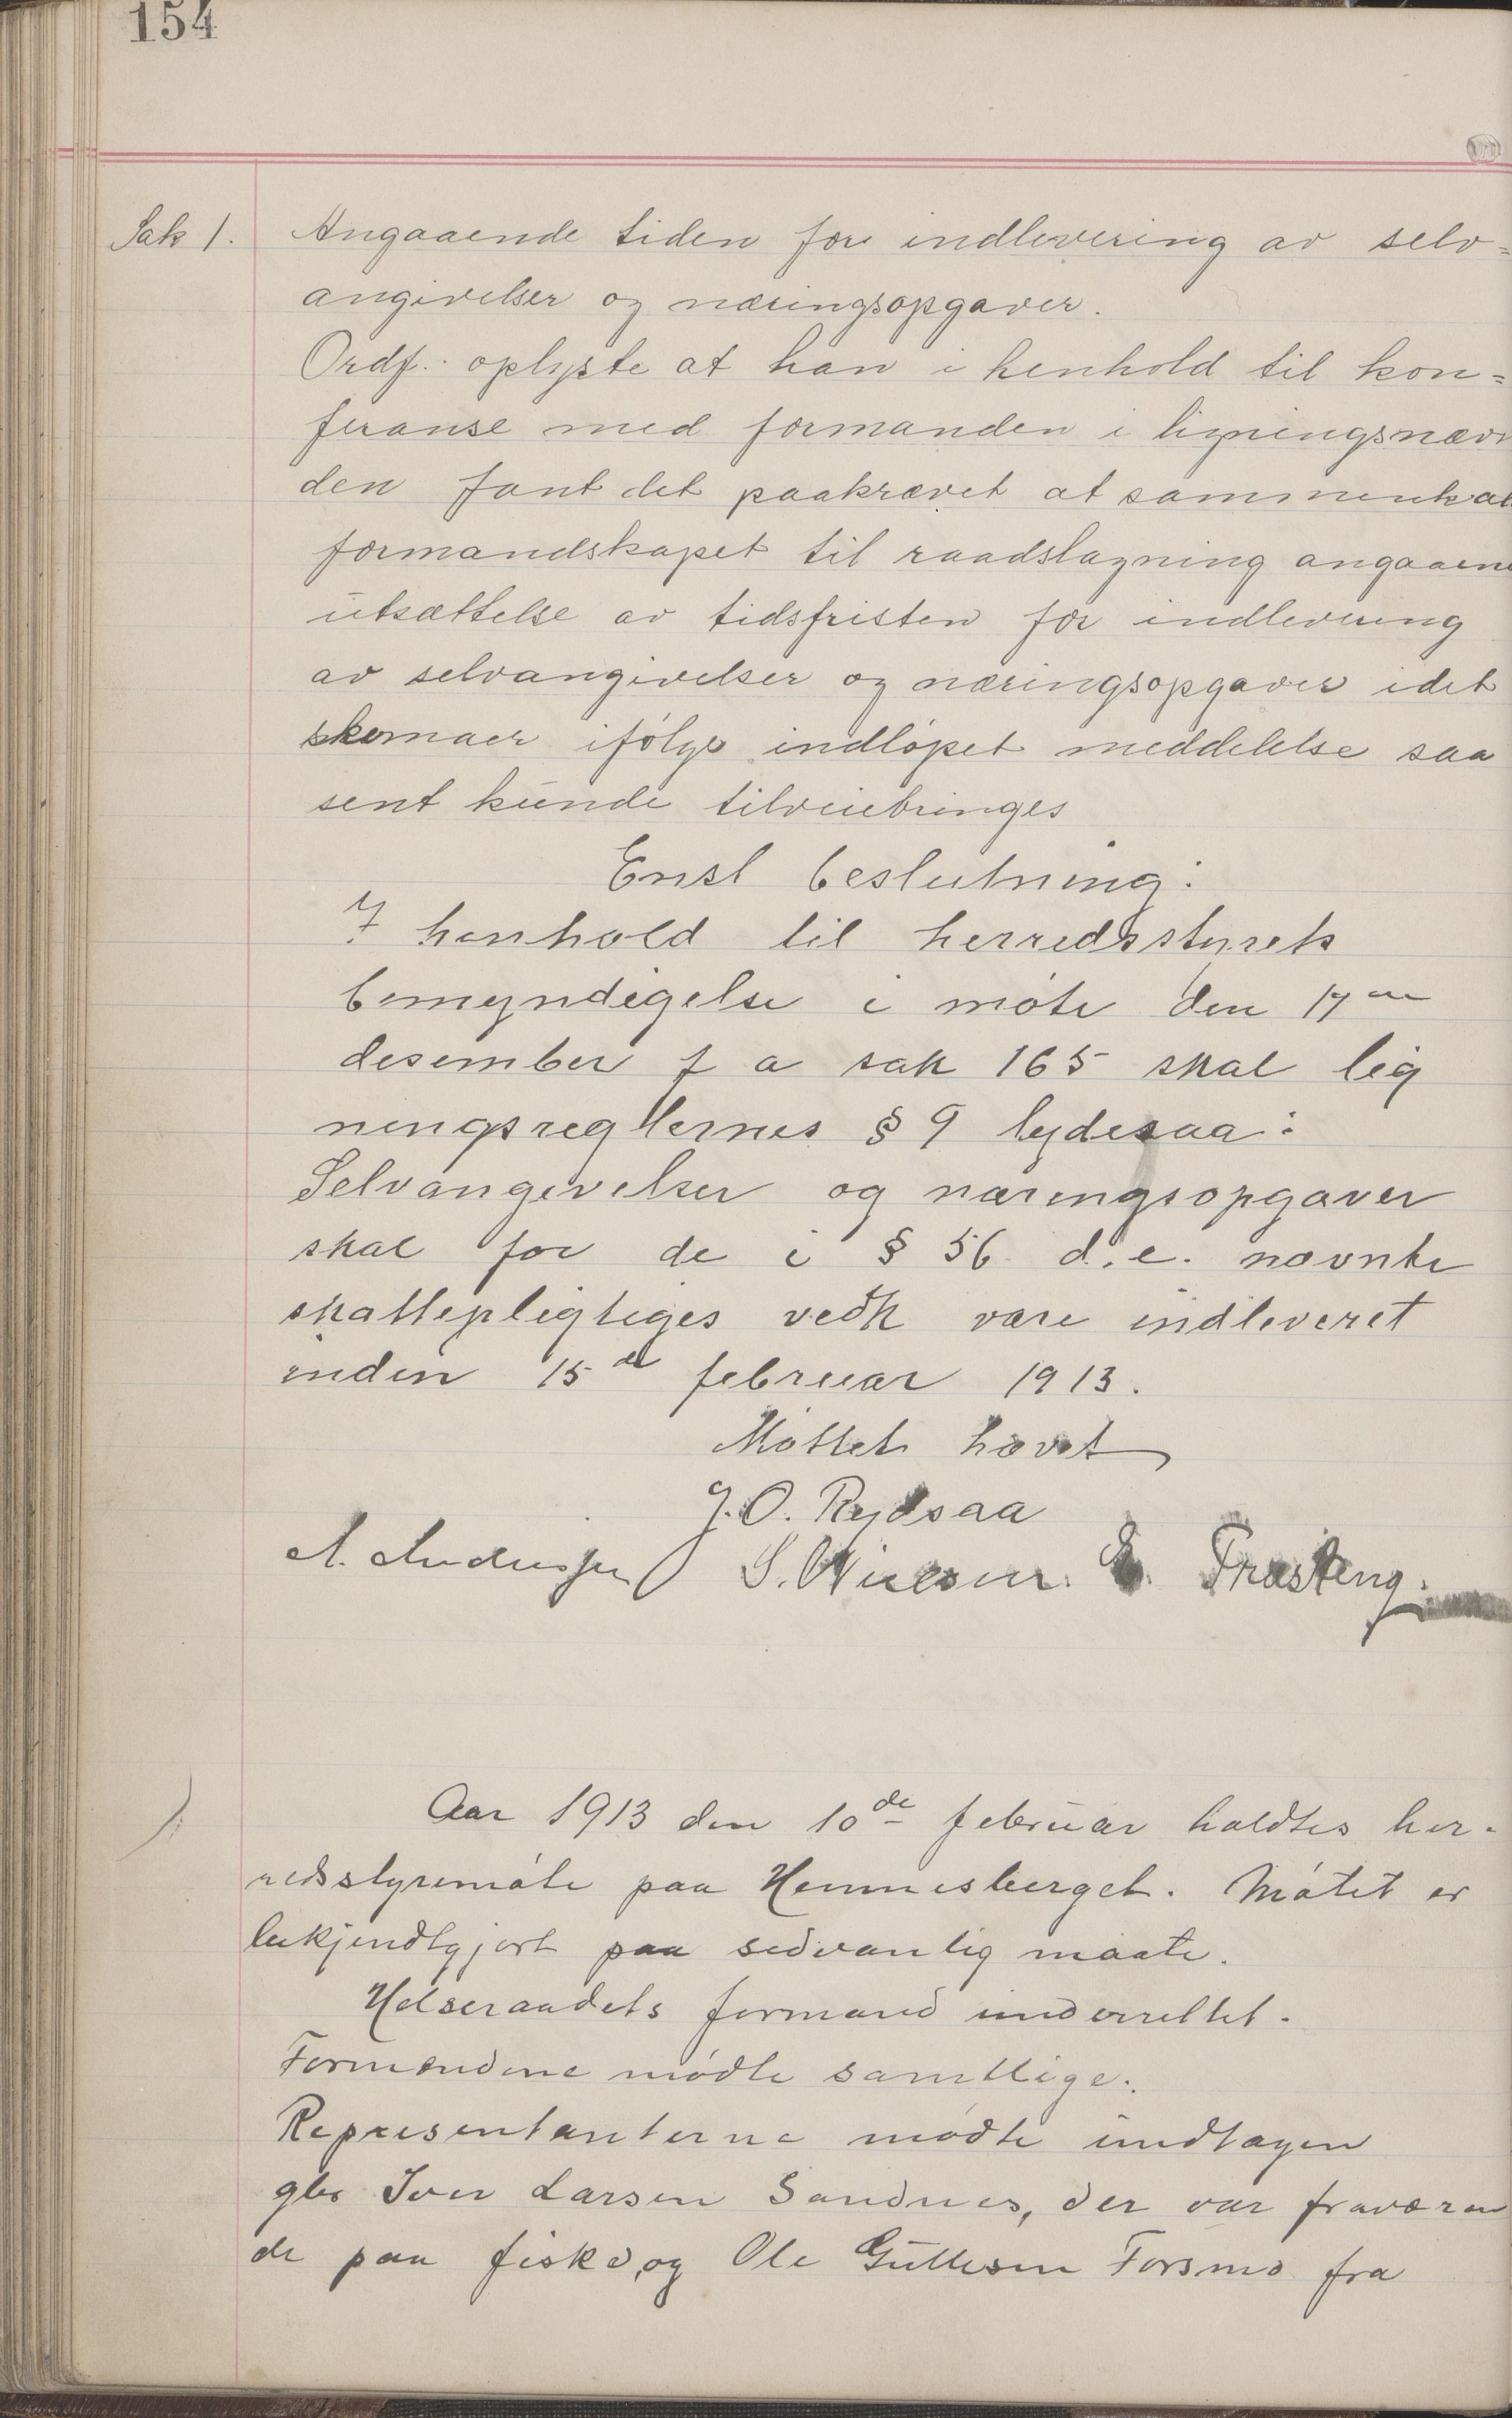 154
Sak 1. Angaaende tiden for indlevering av selv=
angivelser og næringsopgaver.
Ordf. oplyste at han i henhold til kon=
feranse med formanden i ligningsnævn
den fant det paakrævet at sammenkal
formandskapet til raadslagning angaaen
utsættelse av tidsfristen for indlevering
av selvangivelser og næringsopgaver idet
skemaer ifølge indløpet meddelelse saa
sent kunde tilveiebringes
Enst beslutning:
I henhold til herredsstyrets
bemyndigelse i møte den
desember f a sak 165 skal lig
ningsreglernes § 9 lydesaa:
Selvangivelser og næringsopgaver
skal for de i § 56 d.e. nævnte
skattepligtiges vedk være indleveret
inden 15de februar 1913.
Møttet hævet
J.O. Rydsaa
A. Anderssen S. E. Træsteng.
Aar 1913 den 10de februar holdtes her-
redsstyremøte paa Hemnesberget. Møtet er
bekjendtgjort paa sedvanlig maate.
Helseraadets formand underrettet.
Formændene mødte samtlige.
Representanterne mødte undtagen
gbr Iver Larsen Sandnes, der var fraværen
de paa fiske, og Ole Gullesen Forsmo fra